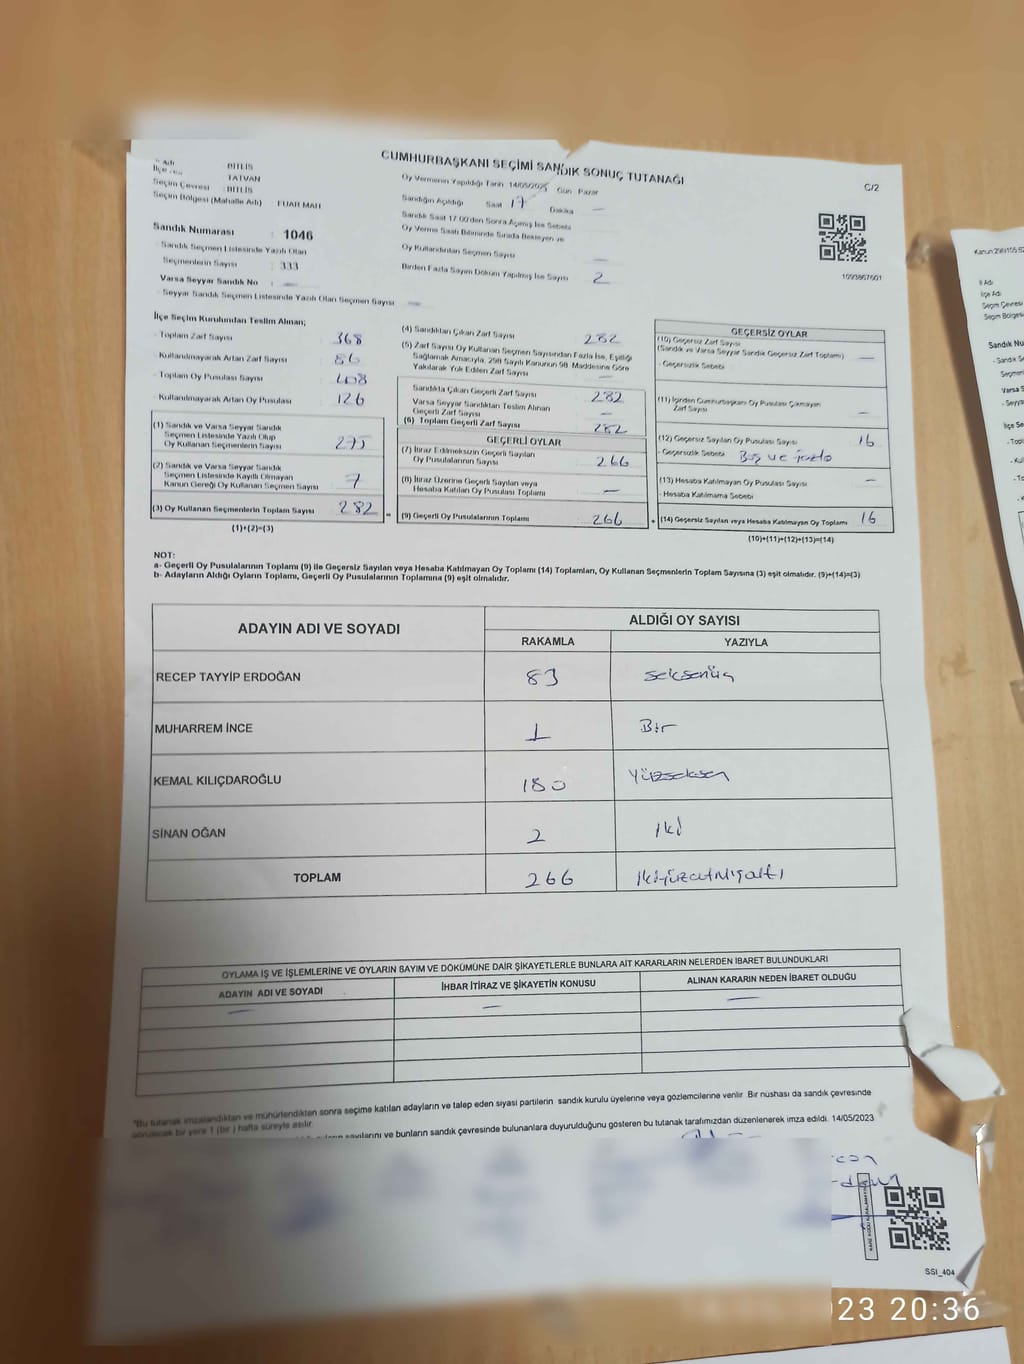 CUMHURBAŞKANI SEÇİMİ SANDIK SONUÇ TUTANAĞI
C/2
İl Adı BİTLİS
İlçe Adı TATVAN
Seçim Çevresi : BİTLİS
Seçim Bölgesi (Mahalle Adı) : FUAR MAH
Sandık Numarası : 1046
- Sandık Seçmen Listesinde Yazılı Olan
Seçmenlerin Sayısı : 333
Varsa Seyyar Sandık No : —
- Seyyar Sandık Seçmen Listesinde Yazılı Olan Seçmen Sayısı —
Oy Vermenin Yapıldığı Tarih 14/05/2023 Gün Pazar
Sandığın Açıldığı Saat 17 Dakika —
Sandık Saat 17:00'den Sonra Açılmış İse Sebebi
Oy Verme Saati Bitiminde Sırada Bekleyen ve
Oy Kullandırılan Seçmen Sayısı —
Birden Fazla Sayım Döküm Yapılmış İse Sayısı 2
1093867601
İlçe Seçim Kurulundan Teslim Alınan;
- Toplam Zarf Sayısı 368
- Kullanılmayarak Artan Zarf Sayısı 86
- Toplam Oy Pusulası Sayısı 408
- Kullanılmayarak Artan Oy Pusulası 126
(1) Sandık ve Varsa Seyyar Sandık
Seçmen Listesinde Yazılı Olup
Oy Kullanan Seçmenlerin Sayısı 275
(2) Sandık ve Varsa Seyyar Sandık
Seçmen Listesinde Kayıtlı Olmayan
Kanun Gereği Oy Kullanan Seçmen Sayısı 7
(3) Oy Kullanan Seçmenlerin Toplam Sayısı 282 =
(1)+(2)=(3)
(4) Sandıktan Çıkan Zarf Sayısı 282
(5) Zarf Sayısı Oy Kullanan Seçmen Sayısından Fazla İse, Eşitliği
Sağlamak Amacıyla, 298 Sayılı Kanunun 98. Maddesine Göre
Yakılarak Yok Edilen Zarf Sayısı —
Sandıkta Çıkan Geçerli Zarf Sayısı 282
Varsa Seyyar Sandıktan Teslim Alınan
Geçerli Zarf Sayısı —
(6) Toplam Geçerli Zarf Sayısı 282
GEÇERLİ OYLAR
(7) İtiraz Edilmeksizin Geçerli Sayılan
Oy Pusulalarının Sayısı 266
(8) İtiraz Üzerine Geçerli Sayılan veya
Hesaba Katılan Oy Pusulası Toplamı —
(9) Geçerli Oy Pusulalarının Toplamı 266 +
GEÇERSİZ OYLAR
(10) Geçersiz Zarf Sayısı
(Sandık ve Varsa Seyyar Sandık Geçersiz Zarf Toplamı) —
- Geçersizlik Sebebi
(11) İçinden Cumhurbaşkanı Oy Pusulası Çıkmayan
Zarf Sayısı —
(12) Geçersiz Sayılan Oy Pusulası Sayısı 16
- Geçersizlik Sebebi Boş ve
(13) Hesaba Katılmayan Oy Pusulası Sayısı —
- Hesaba Katılmama Sebebi
(14) Geçersiz Sayılan veya Hesaba Katılmayan Oy Toplamı 16
(10)+(11)+(12)+(13)=(14)
NOT:
a- Geçerli Oy Pusulalarının Toplamı (9) ile Geçersiz Sayılan veya Hesaba Katılmayan Oy Toplamı (14) Toplamları, Oy Kullanan Seçmenlerin Toplam Sayısına (3) eşit olmalıdır. (9)+(14)=(3)
b- Adayların Aldığı Oyların Toplamı, Geçerli Oy Pusulalarının Toplamına (9) eşit olmalıdır.
ADAYIN ADI VE SOYADI ALDIĞI OY SAYISI
RAKAMLA YAZIYLA
RECEP TAYYİP ERDOĞAN 83 seksenüç
MUHARREM İNCE 1 Bir
KEMAL KILIÇDAROĞLU 180 Yüzseksen
SİNAN OĞAN 2 İki
TOPLAM 266 İkiyüzaltmışaltı
OYLAMA İŞ VE İŞLEMLERİNE VE OYLARIN SAYIM VE DÖKÜMÜNE DAİR ŞİKAYETLERLE BUNLARA AİT KARARLARIN NELERDEN İBARET BULUNDUKLARI
ADAYIN ADI VE SOYADI İHBAR İTİRAZ VE ŞİKAYETİN KONUSU ALINAN KARARIN NEDEN İBARET OLDUĞU
— — —
*Bu tutanak imzalandıktan ve mühürlendikten sonra seçime katılan adayların ve talep eden siyasi partilerin sandık kurulu üyelerine veya gözlemcilerine verilir. Bir nüshası da sandık çevresinde
görülecek bir yere 1 (bir) hafta süreyle asılır.
sayılarını ve bunların sandık çevresinde bulunanlara duyurulduğunu gösteren bu tutanak tarafımızdan düzenlenerek imza edildi. 14/05/2023
SSI_404
23 20:36
Kanun 298/105
İl Adı
İlçe Adı
Seçim Çevresi
Seçim Bölgesi
Sandık Nu